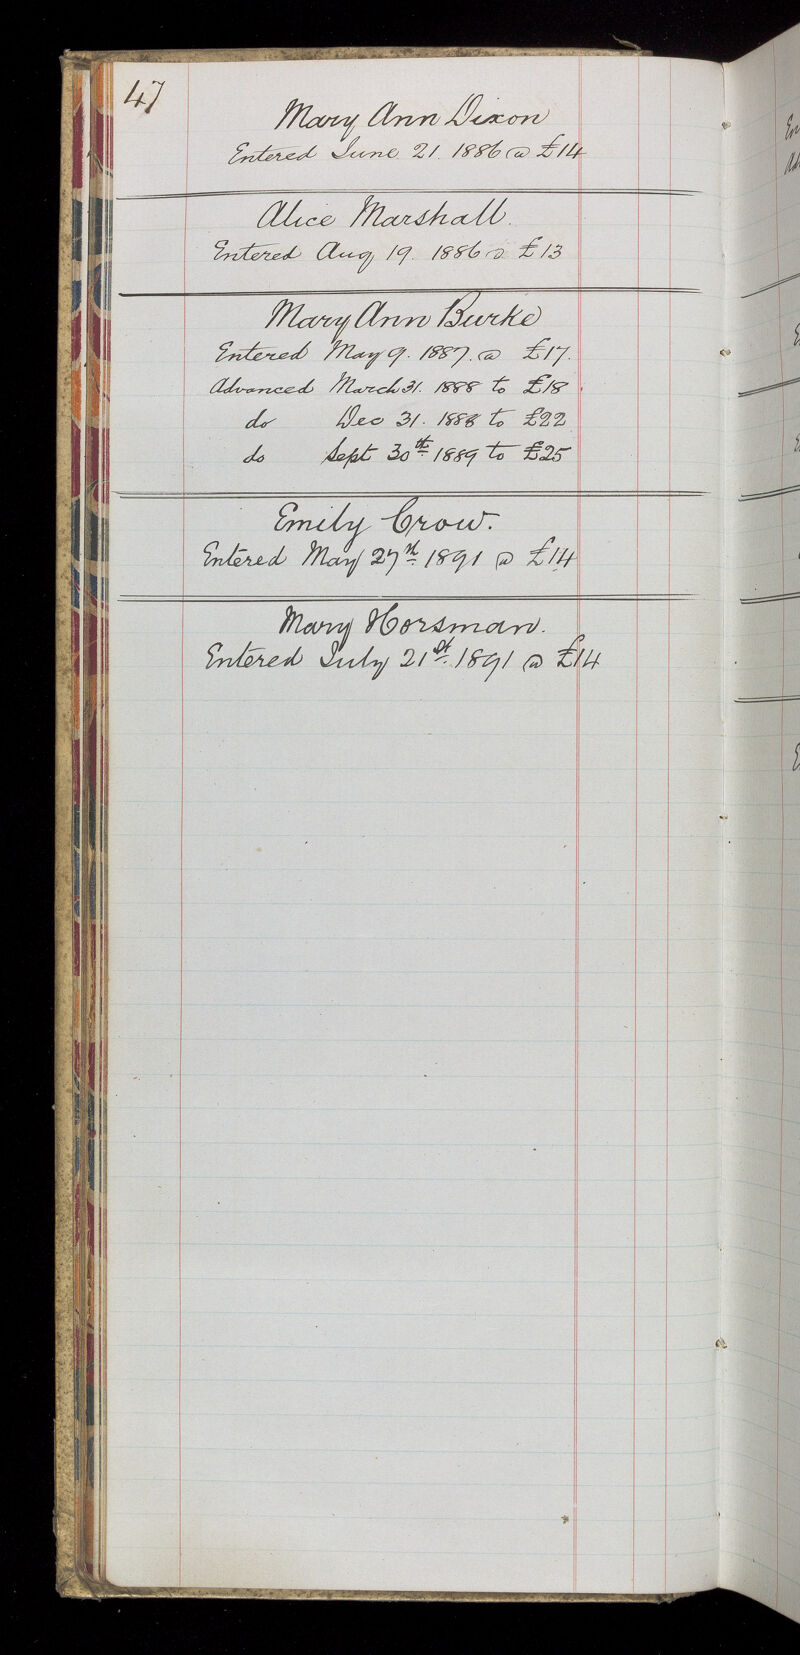 47
Mary Ann Dixon
Entered June 21. 1886 @ £14
Alice Marshall.
Entered Aug 19. 1886 @ £13
Mary Ann Burke
Entered May 9. 1887. @ £17.
Advanced March 31. 1888 to £18
do Dec 31. 1888 to £22
do Sept 30th. 1889 to £25
Emily Crow.
Entered May 27th. 1891 @ £14
Mary Horsman.
Entered July 21st. 1891 @ £14